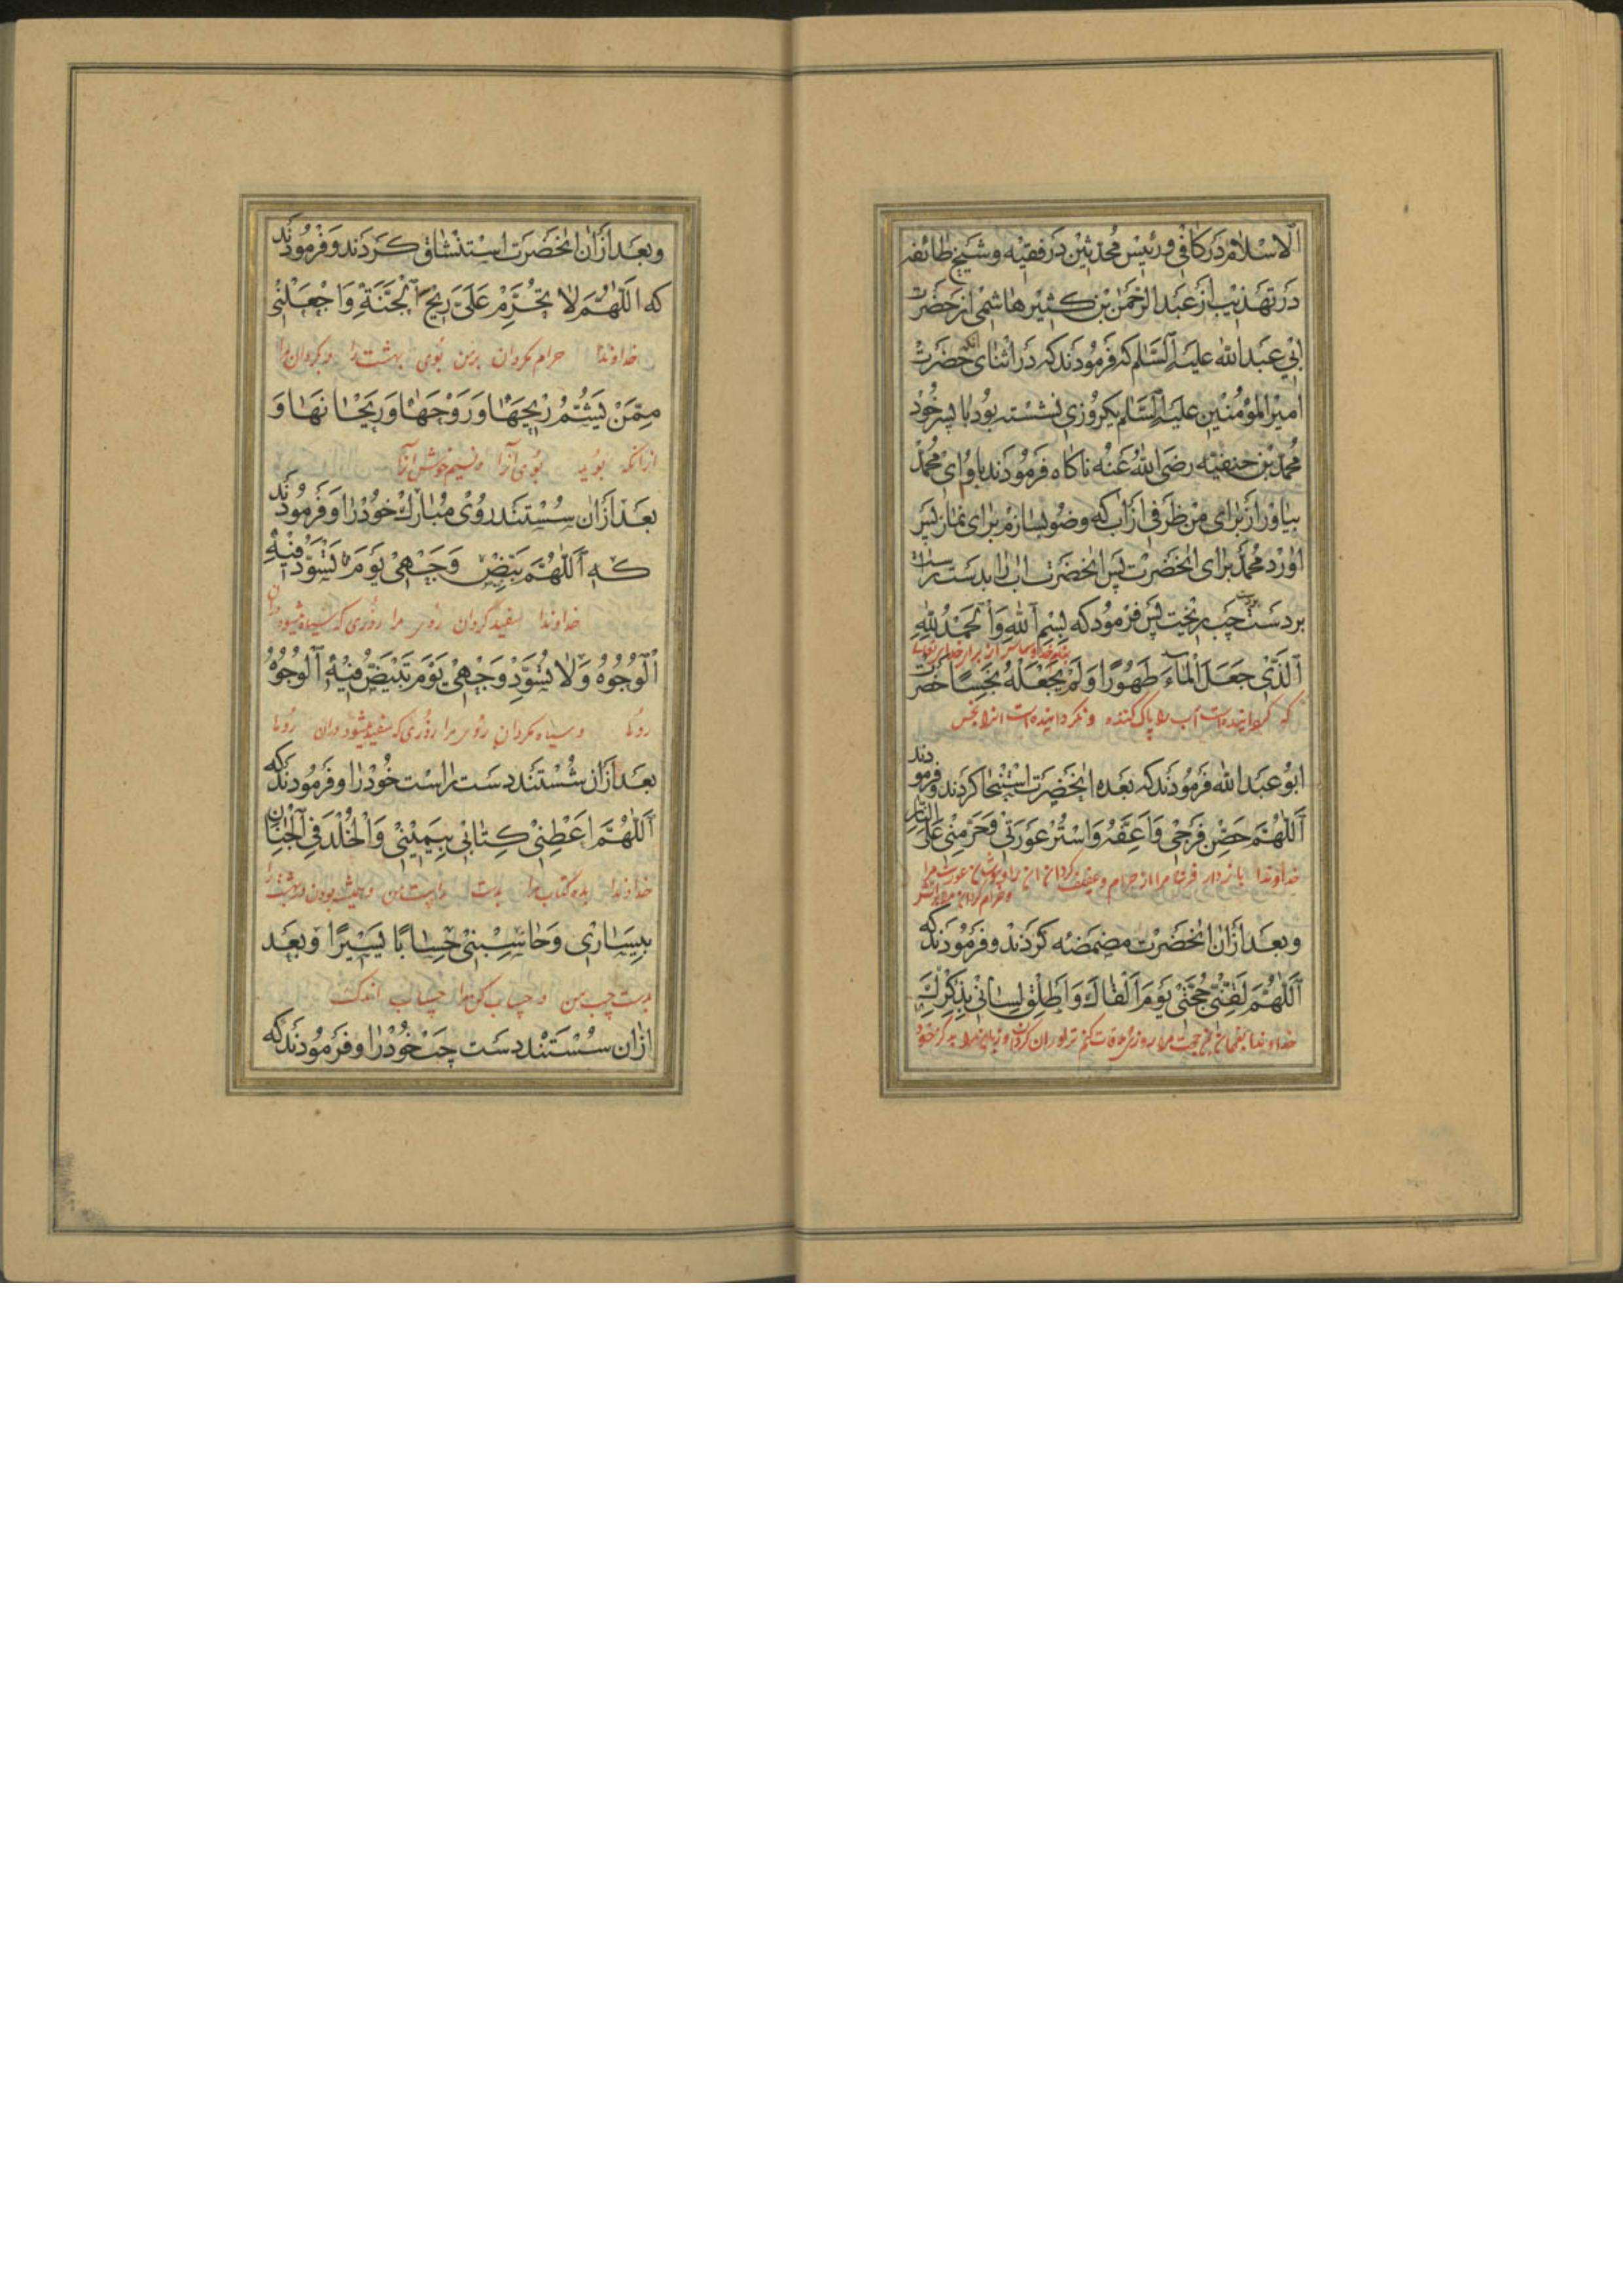 الاسلام در کافی و رئیس محدثین در فقیه و شیخ طائفه
در تهذیب از عبد الرحمن بن کثیر هاشمی از حضرت
ابی عبد الله علیه السلام که فرمودند که در اثنای آنکه حضرت
امیر المؤمنین علیه السلام یکروزی نشسته بود با پسر خود
محمد بن حنفیه رضی الله عنه ناکاه فرمودند باو ای محمد
بیاور از برای من ظرفی از آب که وضو بسازم برای نماز پس
آورد محمد برای آنحضرت پس آنحضرت آب را بدست راست
بر دست چپ ریخت پس فرمود که بسم الله والحمد لله
الذی جعل الماء طهورا ولم یجعله نجسا حضرت
که کردانیده است آب را پاک کننده و نکردانیده است آنرا نجس
ابو عبد الله فرمودند که بعده آنحضرت استنجا کردند و فرمودند
اللهم حصن فرجی واعفه واستر عورتی وحرمنی علی النار
خداوندا بازدار فرج مرا از حرام و عفیف کردان آن را و بپوشان عورت مرا
و حرام کردان مرا بر آتش
و بعد از آن آنحضرت مضمضه کردند و فرمودند که
اللهم لقنی حجتی یوم القاک واطلق لسانی بذکرک
و بعد از آن آنحضرت استنشاق کردند و فرمودند
که اللهم لا تحرم علی ریح الجنة واجعلنی
خداوندا حرام مکردان بر من بوی بهشت را و بکردان مرا
ممن یشم ریحها وروحها وریحانها و
از آنکه بوید بوی آنرا و نسیم خوش آنرا
بعد از آن شستند روی مبارک خود را و فرمودند
که اللهم بیض وجهی یوم تسود فیه
خداوندا سفید کردان روی مرا روزی که سیاه میشود در آن
الوجوه ولا تسود وجهی یوم تبیض فیه الوجوه
رویها و سیاه مکردان روی مرا روزی که سفید میشود در آن رویها
بعد از آن شستند دست راست خود را و فرمودند که
اللهم اعطنی کتابی بیمینی والخلد فی الجنان
خداوندا بده کتاب مرا بدست راست من و همیشه بودن در بهشت را
بیساری وحاسبنی حسابا یسیرا و بعد
بدست چپ من و حساب کن مرا حساب اندک
از آن شستند دست چپ خود را و فرمودند که